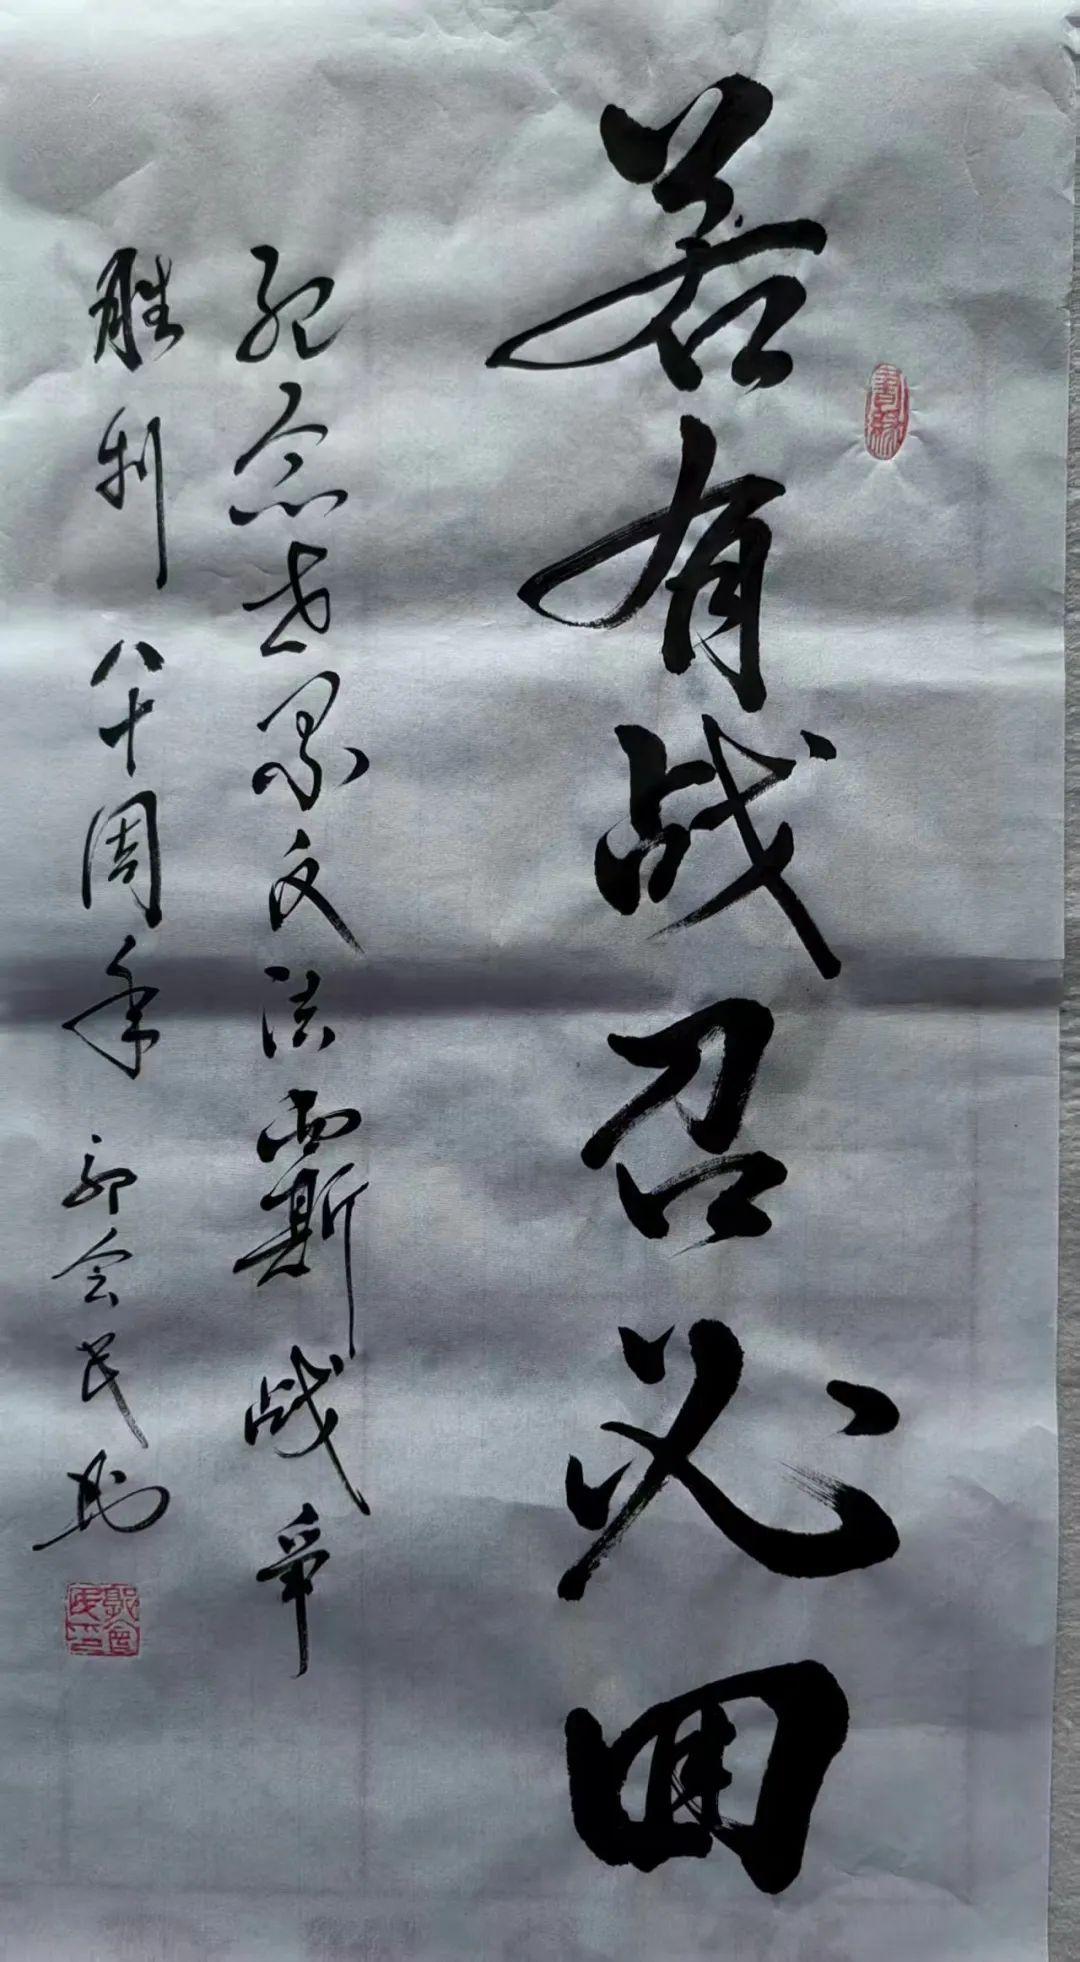 若有战召必回
纪念世界反法西斯战争
胜利八十周年 郭会民书